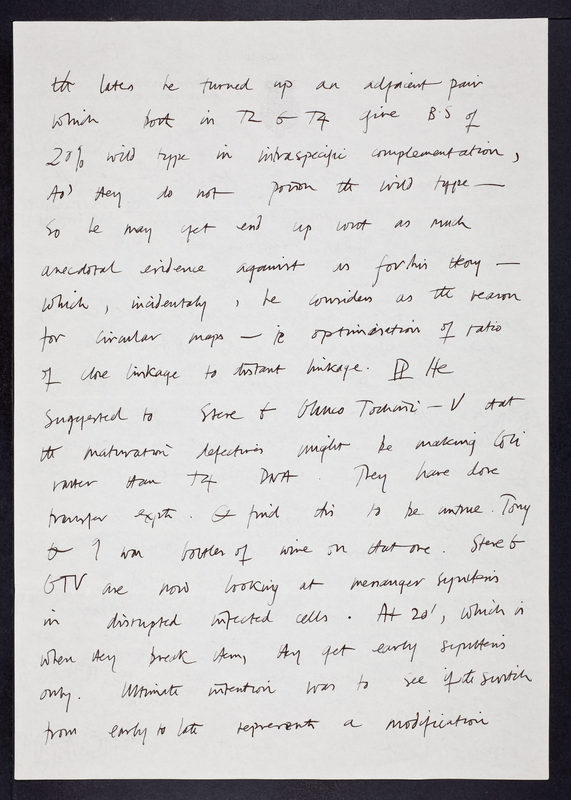 later he turned up an adjacent pair
which both in T2 & T4 give BS of
20% wild type in intraspecific complementation,
they do not poison the wild type —
So he may yet end up with as much
anecdotal evidence against as for his theory —
which, incidentally, he considers as the reason
for circular maps — ie optimisation of ratio
of close linkage to distant linkage. He
suggested to Steve & Glauco Tocchini-V that
the maturation defectives might be making Coli
rather than T4 DNA. They have done
transfer expts. & find this to be untrue. Tony
& I won bottles of wine on that one. Steve &
GTV are now looking at messenger synthesis
in disrupted infected cells. At 20', which is
when they break them, they get early synthesis
only. Ultimate intention was to see if the switch
from early to late represents a modification